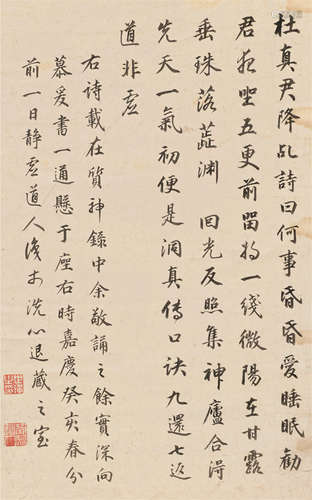 杜真君降乩詩曰何事昏昏愛睡眠勸
君夜坐五更前留將一綫微陽在甘露
垂珠落蕋淵回光反照集神廬合得
先天一氣初便是洞真傳口訣九還七返
道非虛
右詩載在質神錄中余敬誦之餘實深向
慕爰書一通懸于座右時嘉慶癸亥春分
前一日静虛道人漫書於洗心退藏之室